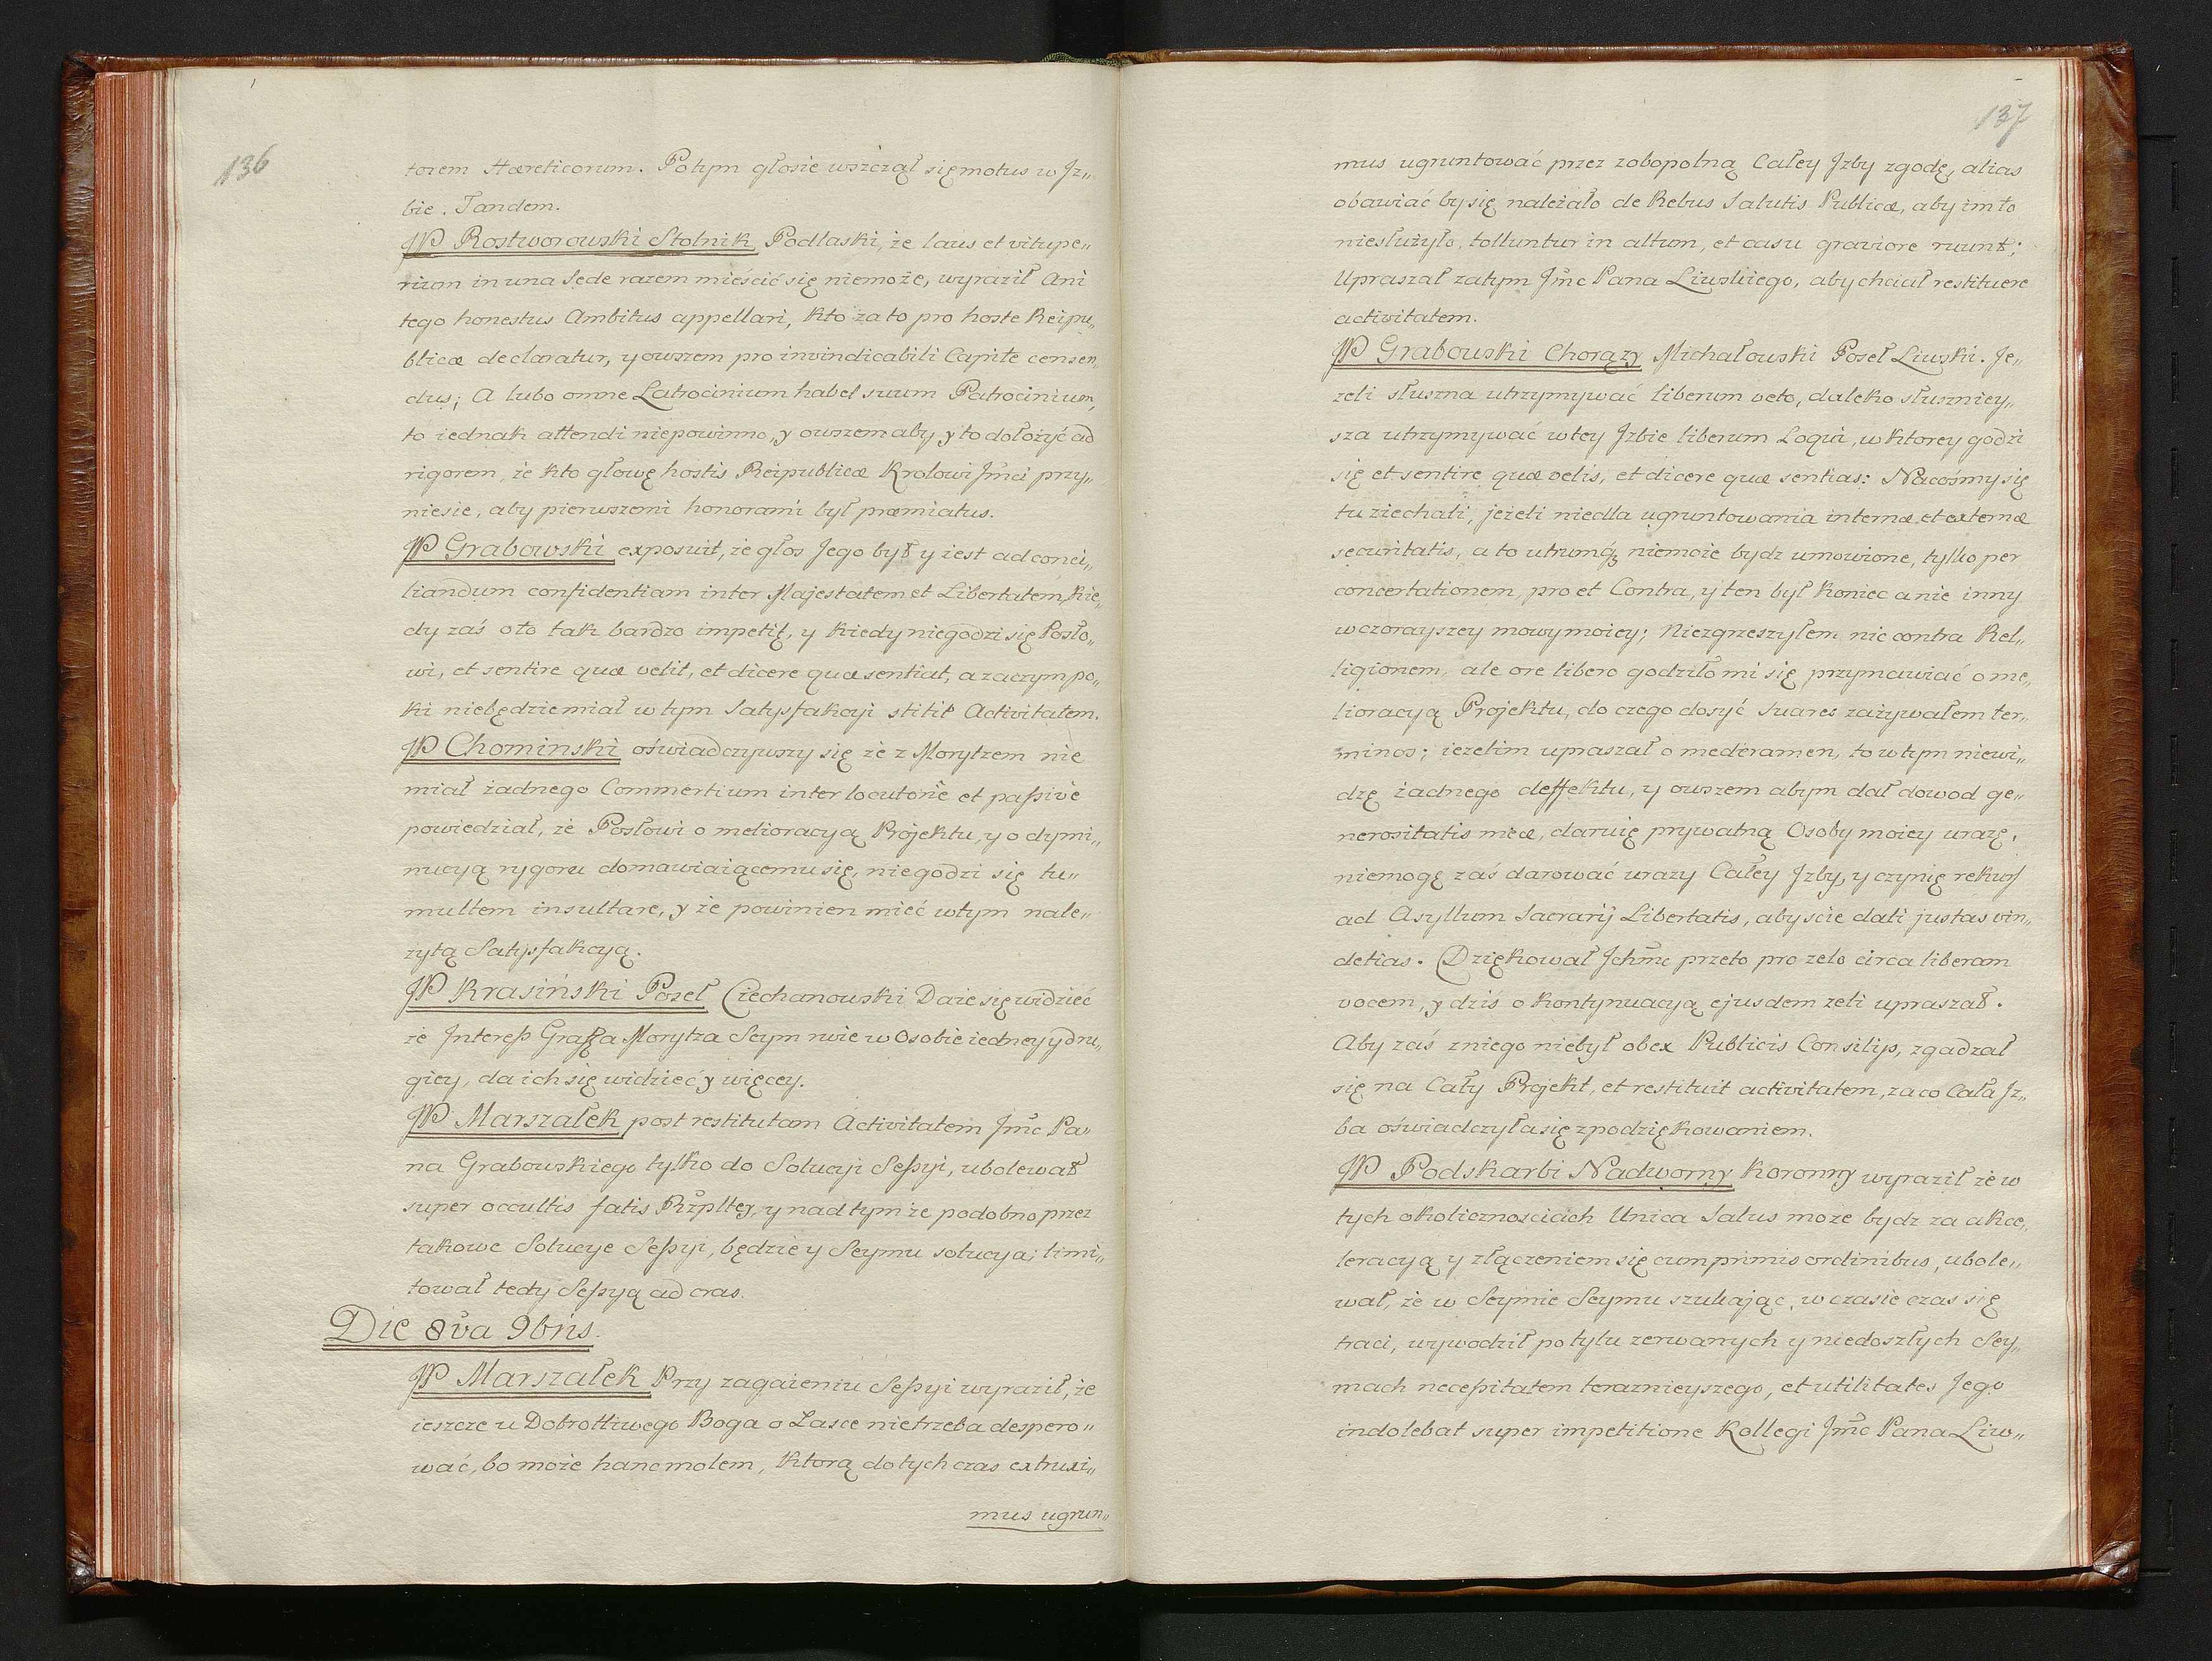 136
torem Hæreticorum. Po tym głosie wszczął się motus w Jz„
bie. Tandem.
JP Rostworowski Stolnik Podlaski, że laus et vitupe„
rium in una Sede razem mieścić się niemoże, wyraził Ani
tego honestus Ambitus appellari, kto za to pro hoste Reipu„
blicæ declaratur, y owszem pro invindicabili Capite censen„
dus; A lubo omne Latrocinium habet suum Patrocinium,
to iednak attendi niepowinno, y owszem aby y to dołożyć ad
rigorem, że kto głowę hostis Reipublicæ Krolowi Jm̃ci przy„
niesie, aby pierwszemi honorami był præmiatus.
JP Grabowski exposuit, że głos Jego był y iest ad conci„
liandum confidentiam inter Majestatem et Libertatem, kie„
dy zaś oto tak bardzo impetit, y kiedy niegodzi się Posło„
wi, et sentire quæ velit, et dicere quæ sentiat, a zaczym po„
ki niebędzie miał w tym Satysfakcyi stitit Activitatem.
JP Chominski oświadczywszy się że z Morytzem nie
miał żadnego Commertium interlocutorie et passive
powiedział, że Posłowi o melioracyą Projektu, y o dymi„
nucyą rygoru domawiaiącemu się, niegodzi się tu„
multem insultare, y że powinien mieć w tym nale„
zytą Satysfakcyą.
JP Krasiński Poseł Ciechanowski Daie się widzieć
że Interess Graffa Morytza Seym rwie w Osobie iedney y dru„
giey, da ich się widzieć y więcey.
JP Marszałek post restitutam Activitatem Jm̃c Pa„
na Grabowskiego tylko do Solucyi Sessyi, ubolewał
super occultis fatis Rzpltey, y nad tym że podobno przez
takowe Solucye Sessyi, będzie y Seymu solucya; limi„
tował tedy Sessyą ad cras.
Die 8va 9bris.
JP Marszałek Przy zagaieniu Sessyi wyraził, że
ieszcze u Dobrotliwego Boga o Łasce nietrzeba despero„
wać, bo może hanc molem, ktorą do tych czas extruxi„
mus ugrun„
137
mus ugruntować przez zobopolną Całey Jzby zgodę, alias
obawiać by się należało de Rebus Salutis Publicæ, aby im to
niesłużyło, tolluntur in altum, et casu graviore ruunt;
Upraszał zatym Jm̃c Pana Liwskiego, aby chciał restituere
activitatem.
JP Grabowski Chorązy Michałowski Poseł Liwski. Je„
zeli słuszna utrzymywać liberum veto, daleko słuszniey„
sza utrzymywać w tey Jzbie liberum Loqui, w ktorey godzi
się et sentire quæ velis, et dicere quæ sentias: Nacośmy się
tu ziechali, jeżeli niedla ugruntowania internæ et externæ
securitatis, a to utrumq; niemoże bydz umowione, tylko per
concertationem, pro et Contra, y ten był koniec a nie inny
wczorayszey mowy moiey; Niezgrzeszyłem nic contra Rel„
ligionem, ale ore libero godziło mi się przymawiać o me„
lioracyą Projektu, do czego dosyć suaves zażywałem ter„
minos; iezelim upraszał o mederamen, to w tym niewi„
dzę żadnego deffektu, y owszem abym dał dowod ge„
nerositatis meæ, daruię prywatną Osoby moiey urazę,
niemogę zaś darować urazy Całey Jzby, y czynię rekurs
ad Asyllum Sacrarij Libertatis, abyscie dali justas vin„
detias. Dziękował Jchm̃c przeto pro zelo circa liberam
vocem, y dziś o kontynuacyą ejusdem zeli upraszał.
Aby zaś zniego niebył obex Publicis Consilijs, zgadzał
się na Cały Projekt, et restituit activitatem, za co Cała Jz„
ba oświadczyła się z podziękowaniem.
JP Podskarbi Nadworny Koronny wyraził że w
tych okolicznosciach Unica Salus może bydz za akce„
leracyą y złączeniem się cum primis ordinibus, ubole„
wał, że w Seymie Seymu szukając, w czasie czas się
traci, wywodził po tylu zerwanych y niedoszłych Sey„
mach necessitatem terazniejszego, et utilitates Jego
indolebat super impetitione Kollegi Jm̃c Pana Liw„